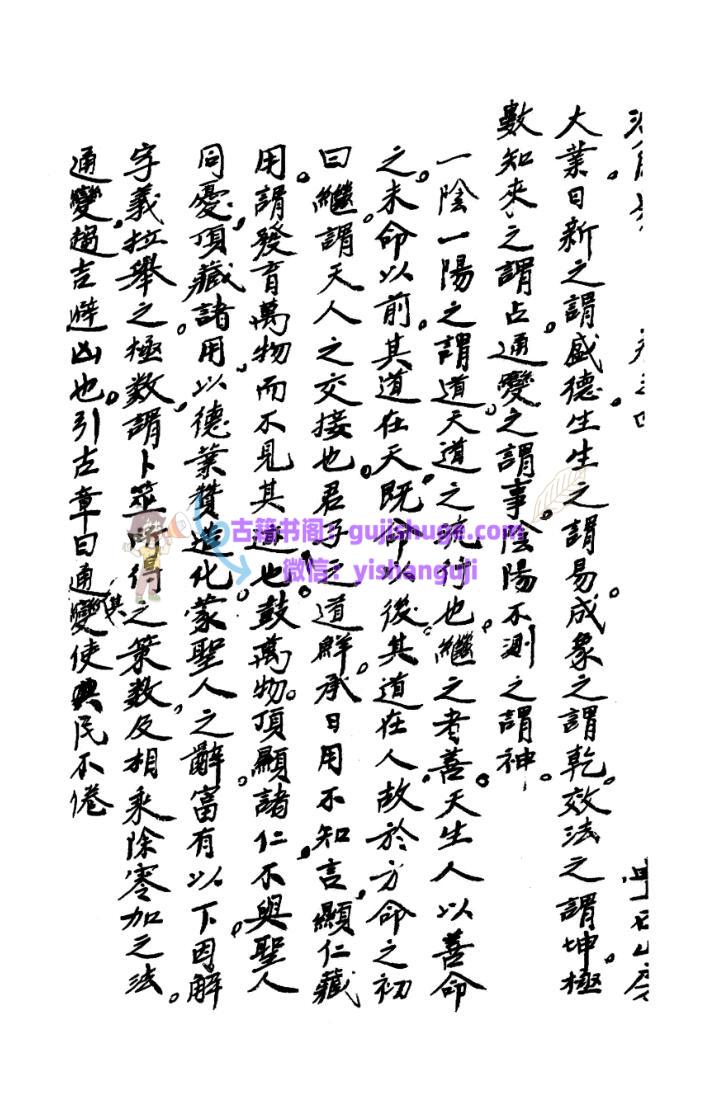 大業。日新之謂盛德。生生之謂易。成象之謂乾。效法之謂坤。極
數知來之謂占。通變之謂事。陰陽不測之謂神。
一陰一陽之謂道。天道之流行也。繼之者善。天生人以善命
之。未命以前。其道在天。既命以後。其道在人。故於方命之初
曰繼。謂天人之交接也。君子之道鮮。承日用不知言。顯仁藏
用。謂發育萬物而不見其道也。鼓萬物。頂顯諸仁。不與聖人
同憂。頂藏諸用。以德業贊造化。蒙聖人之辭。富有以下。因解
字義。拉舉之。極數。謂卜筮所得之策數。及相乘除零加之法。
通變。趨吉避凶也。引古章曰通其變使民不倦
古籍书阁:gujishuge.com
微信:yishanguji